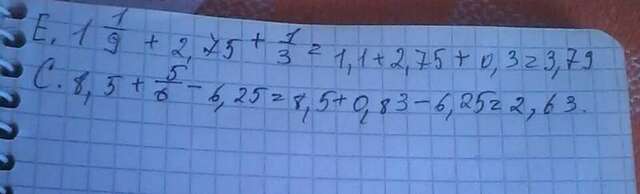 E. 1 1/9 + 2,75 + 1/3 = 1,1+2,75+0,3=3,79
C. 8,5 + 5/6 - 6,25 = 8,5+0,83-6,25=2,63.